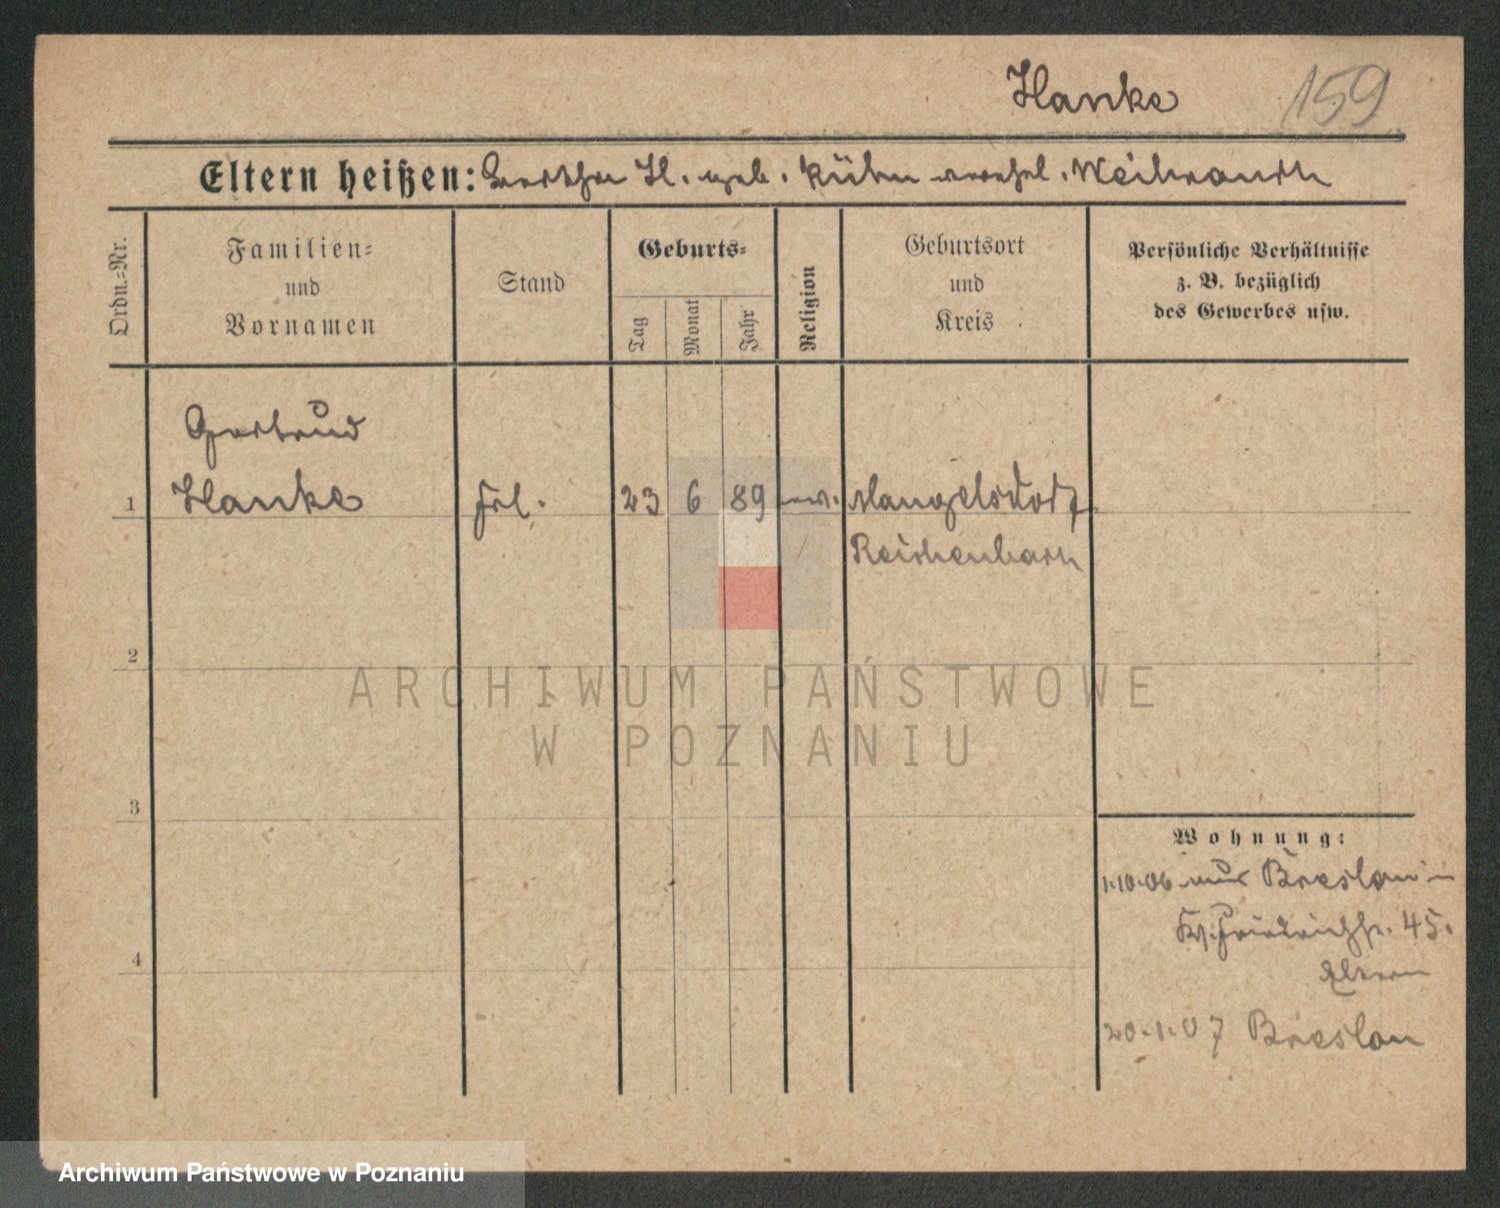 Hanke 159
Eltern heißen: Bertha H. geb. Kühn verehel. Weihrauch
Ordn.-Nr.
Familien-
und
Vornamen
Stand
Geburts-
Tag
Monat
Jahr
Religion
Geburtsort
und
Kreis
Persönliche Verhältnisse
z. B. bezüglich
des Gewerbes usw.
Gertrud
1 Hanke Frl. 23 6 89 ev. Mangelsdorf
Reichenbach
2
ARCHIWUM PAŃSTWOWE
W POZNANIU
3
Wohnung:
1.10.06 aus Breslau in
Friedrichstr. 45.
Eltern
4
20.1.07 Breslau
Archiwum Państwowe w Poznaniu